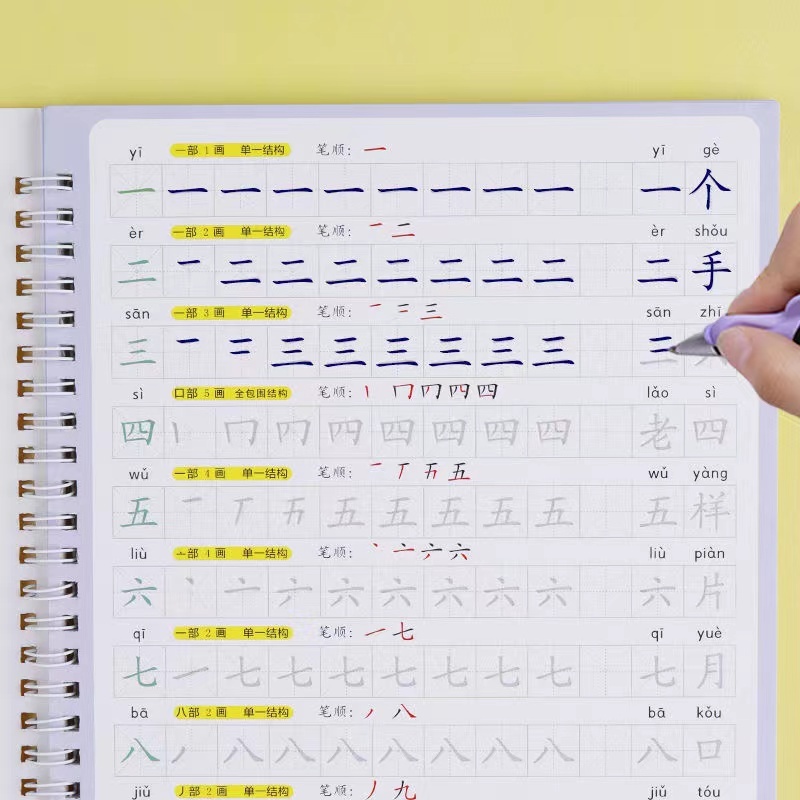 yī 一部 1 画 单一结构 笔顺: 一 yī gè
一 一 一 一 一 一 一 一 一 一 个
èr 一部 2 画 单一结构 笔顺: 一 二 èr shǒu
二 一 二 二 二 二 二 二 二 二 手
sān 一部 3 画 单一结构 笔顺: 一 二 三 sān zhī
三 一 二 三 三 三 三 三 三 三
sì 口部 5 画 全包围结构 笔顺: 丨 冂 四 四 lǎo sì
四 丨 冂 四 四 四 四 四 老 四
wǔ 一部 4 画 单一结构 笔顺: 一 丅 五 wǔ yàng
五 一 丅 五 五 五 五 五 五 样
liù 亠部 4 画 单一结构 笔顺: 丶 亠 六 liù piàn
六 丶 亠 六 六 六 六 六 六 片
qī 一部 2 画 单一结构 笔顺: 一 七 qī yuè
七 一 七 七 七 七 七 七 七 七 月
bā 八部 2 画 单一结构 笔顺: 丿 八 bā kǒu
八 丿 八 八 八 八 八 八 八 八 口
jiǔ 丿部 2 画 单一结构 笔顺: 丿 九 jiǔ tóu